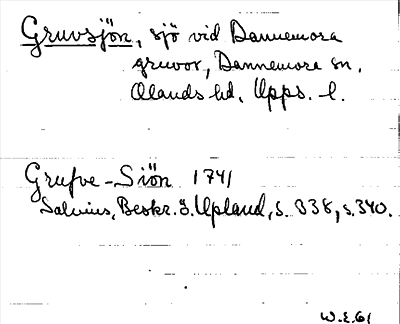 Gruvsjön, sjö vid Dannemora
gruvor, Dannemora sn,
Olands hd, Upps. l.
Grufve-Siön 1741
Salvius, Beskr. ö. Upland, s. 338, s. 340.
W.E. 61